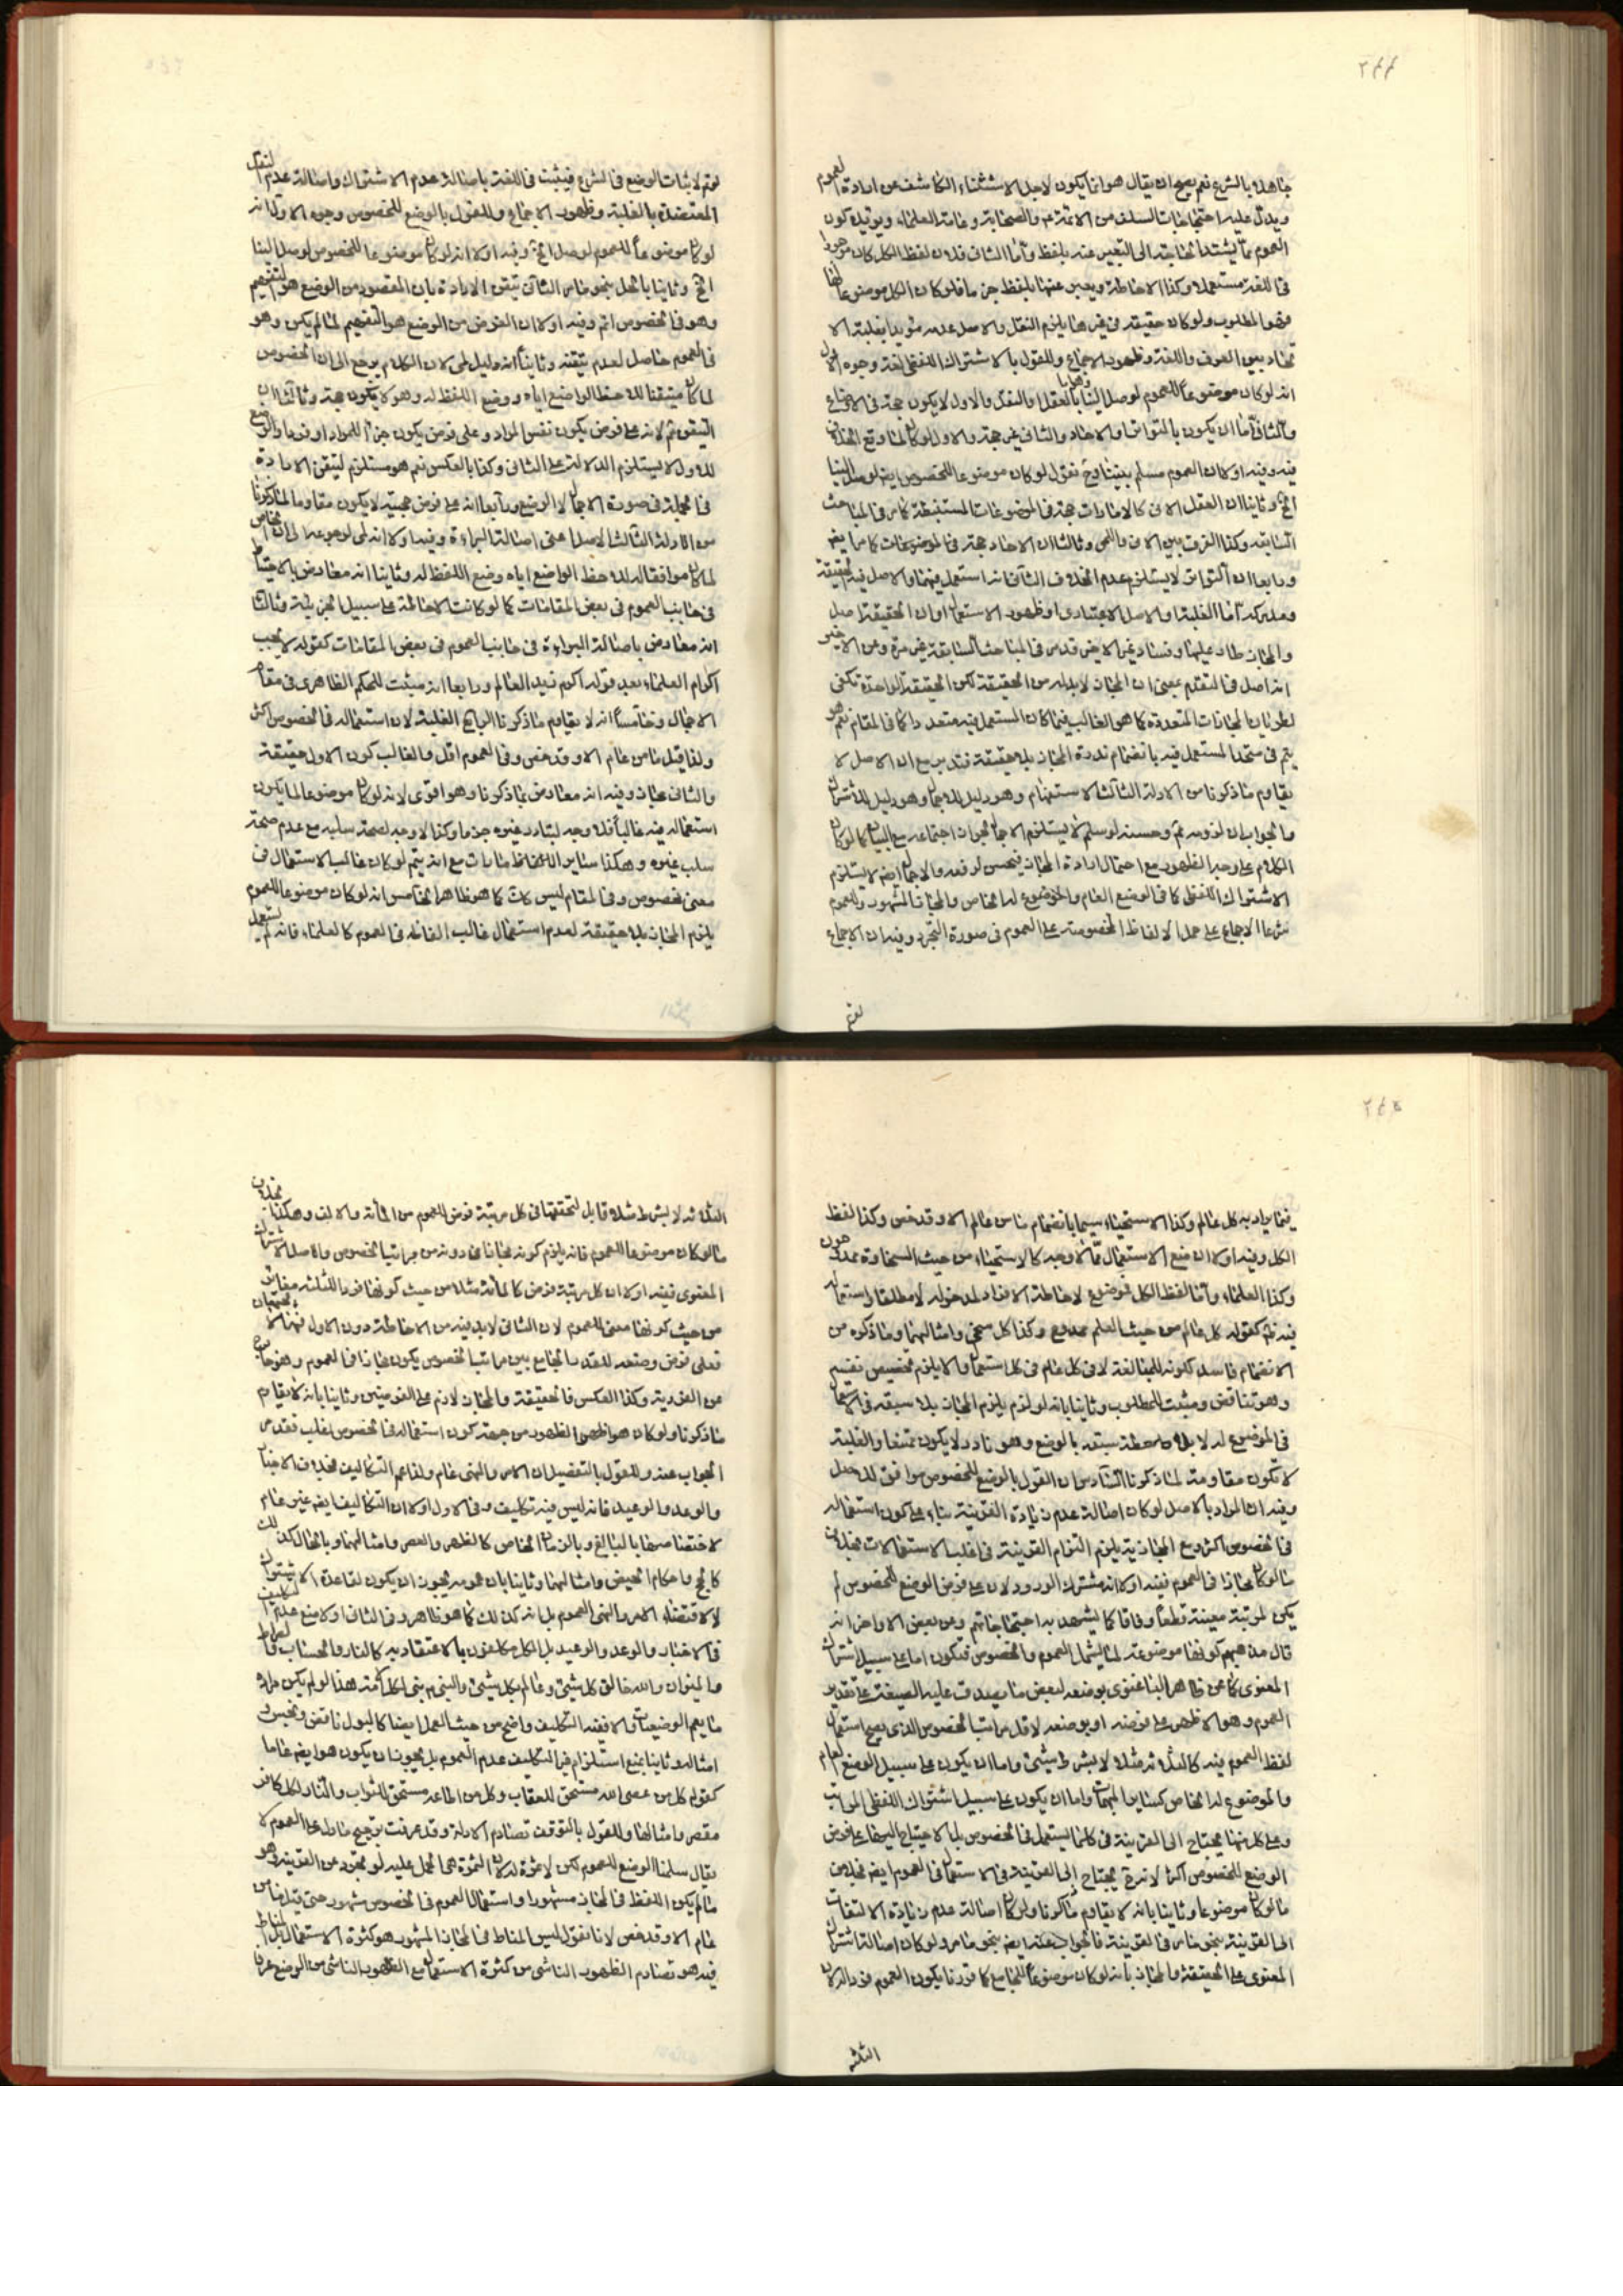 ٢٤٤
جاهلا بالشرع نعم يصح ان يقال هو انما يكون لاجل الاستثناء الكاشف عن ارادة العموم
ويدل عليه احتجاجات السلف من الائمة ع والصحابة وعامة العلماء ويؤيده كون
العموم مما يشتد الحاجة الى التعبير عنه بلفظ واما الثاني فلان لفظ الكل كان
في اللغة مستعملا وكذا الاحاطة ويعبر عنها بلفظ فلو كان الكل موضوعا لها
فهو المطلوب ولو كان حقيقة في غيرها يلزم النقل والاصل عدمه مؤيدا بغلبة الا
تحاد بين العرف واللغة وظهور الاجماع وللقول بالاشتراك اللفظي لغة وجوه الاول
انه لو كان موضوعا للعموم لوصل الينا بالعقل او النقل والاول لا يكون حجة في الاوضاع
والثاني اما ان يكون بالتواتر او الاحاد والثاني غير حجة والاول لو كان لما وقع الخلاف
فيه وفيه اولا ان العموم مسلم بيننا وح نقول لو كان موضوعا للخصوص ايضا لوصل الينا
الخ وثانيا ان العقل الاني كالامارات حجة في الموضوعات المستنبطة كما مر في المباحث
السابقة وكذا الفرق بين الاني واللمي وثالثا ان الاحاد حجة في الموضوعات كما مر ايضا
ورابعا ان التواتر لا يستلزم عدم الخلاف الثاني انه استعمل فيهما والاصل فيه الحقيقة
اما الغلبة او الاصل الاعتباري او ظهور الاستعمال او ان الحقيقة اصل
والمجاز طار عليها وفساد غير الاخير قد مر في المباحث السابقة غير مرة وعن الاخير
انه اصل في المتقدم بمعنى ان المجاز لا بد له من الحقيقة لكن الحقيقة الواحدة تكفي
لطريان المجازات المتعددة كما هو الغالب فيما كان المستعمل فيه متعددا كما في المقام نعم هو
يتم في متحد المستعمل فيه بانضمام ندرة المجاز بلا حقيقة فتدبر مع ان الاصل لا
يقاوم ما ذكرنا من الادلة الثالث الاستفهام وهو دليل الاجمال وهو دليل الاشتراك
والجواب ان لزومه ثم وحسنه لو سلم لا يستلزم الاجمال لجواز اجتماعه مع البيان كما لو كان
الكلام على وجه الظهور مع احتمال ارادة المجاز فيحسن لرفعه والاجمال ايضا لا يستلزم
الاشتراك اللفظي كما في الوضع العام والموضوع له الخاص والمجاز المشهور وللعموم
شرعا الاجماع على حمل الالفاظ المخصوصة على العموم في صورة التجرد وفيه ان الاجماع
لو تم
لو تم لاثبات الوضع في الشرع فيثبت في اللغة باصالة عدم الاشتراك واصالة عدم النقل
المعتضدة بالغلبة وظهور الاجماع وللقول بالوضع للخصوص وجوه الاول انه
لو كان موضوعا للعموم لوصل الخ وفيه اولا انه لو كان موضوعا للخصوص لوصل الينا
الخ وثانيا بالحل بنحو ما مر الثاني تيقن الارادة بان المقصود من الوضع هو التفهيم
وهو في الخصوص اتم وفيه اولا ان الغرض من الوضع هو التفهيم لما لم يكن وهو
في العموم حاصل لعدم تيقنه وثانيا انه دليل لمي لان الكلام يرجع الى ان الخصوص
لما كان متيقنا لاحظ الواضع اياه ووضع اللفظ له وهو لا يكون حجة وثالثا ان
التيقن ثم لانه على فرض يكون نفس المراد وعلى فرض يكون جزء المراد او فردا والوضع
للاول لا يستلزم الدلالة على الثاني وكذا بالعكس نعم هو مستلزم لتيقن الارادة
في الجملة في صورة الاجمال لا الوضع ورابعا انه على فرض حجيته لا يكون مقاوما لما ذكرنا
من الادلة الثالث الاصل اعني اصالة البراءة وفيه اولا انه لمي لرجوعه الى ان الخاص
لما كان موافقا له لاحظ الواضع اياه وضع اللفظ له وثانيا انه معارض بالاحتياط
في جانب العموم في بعض المقامات كما لو كانت الاحاطة على سبيل الجزئية وثالثا
انه معارض باصالة البراءة في جانب العموم في بعض المقامات كقوله لا يجب
اكرام العلماء بعد قوله اكرم زيد العالم ورابعا انه مثبت للحكم الظاهري في مقام
الاجمال وخامسا انه لا يقاوم ما ذكرنا الرابع الغلبة لان استعماله في الخصوص اكثر
ولذا قيل ما من عام الا وقد خص وفي العموم اقل والغالب كون الاول حقيقة
والثاني مجاز وفيه انه معارض بما ذكرنا وهو اقوى لانه لو كان موضوعا لما يكون
استعماله فيه غالبا فلا وجه لتبادر غيره جزما وكذا لا وجه لصحة سلبه مع عدم صحة
سلب غيره وهكذا ساير الالفاظ مع انه يتم لو كان غالب الاستعمال في
معنى مخصوص وفي المقام ليس كك كما هو ظاهر الخامس انه لو كان موضوعا للعموم
يلزم المجاز بلا حقيقة لعدم استعمال غالب الفاظه في العموم كالعلماء فانه لم يستعمل
٢٤٥
فيما يراد به كل عالم وكذا الاستحياء سيما بانضمام ما من عام الا وقد خص وكذا لفظ
الكل وفيه اولا ان منع الاستعمال مما لا وجه له
وكذا العلماء واما لفظ الكل فموضوع لاحاطة الافراد لمدخوله لا مطلقا واستعماله
كقوله كل عالم من حيث العلم ممدوح وكذا كل سخي وامثالهما وما ذكره من
الانضمام فاسد لكونه للمبالغة لا في كل عام في كل استعمال والا يلزم تخصيص نفسه
وهو تناقض ومثبت للمطلوب وثانيا بانه لو لزم يلزم المجاز بلا سبقه في الاستعمال
في الموضوع له لا بلا ملاحظة سبقه بالوضع وهو نادر لا يكون ممتنعا والغلبة
لا تكون مقاومة لما ذكرنا السادس ان القول بالوضع للخصوص موافق للاصل
وفيه ان المراد بالاصل لو كان اصالة عدم زيادة القرينة بناء على كون استعماله
في الخصوص اكثر ومع المجازية يلزم التزام القرينة في اغلب الاستعمالات بخلاف
ما لو كان مجازا في العموم ففيه اولا انه مشترك الورود لان على فرض الوضع للخصوص لم
يكن لمرتبة معينة قطعا وفاقا كما يشهد به احتجاجاتهم وعن بعض الاواخر انه
قال مذهبهم كونها موضوعة لما يشمل العموم والخصوص فتكون اما على سبيل الاشتراك
المعنوي كما عن ظاهر الباغنوي بوضعه لبعض ما يصدق عليه الصيغة على تقدير
العموم وهو الاظهر على فرضه او بوضعه لاقل مراتب الخصوص الذي يصح استعمال
لفظ العموم فيه كالثلاثة مثلا لا بشرط شيئ واما ان يكون على سبيل الوضع العام
والموضوع له الخاص كساير المبهمات واما ان يكون على سبيل اشتراك اللفظي
وعلى كل منها يحتاج الى القرينة في كلما يستعمل في الخصوص بل الاحتياج اليها على فرض
الوضع للخصوص اكثر لانه يحتاج الى القرينة في الاستعمال في العموم ايضا بخلاف
ما لو كان موضوعا وثانيا بانه لا يقاوم ما ذكرنا ولو كان اصالة عدم زيادة الالتفات
الى القرينة بنحو ما مر في القرينة فالجواب عنه ايضا بنحو ما مر ولو كان اصالة اشتراك
المعنوي على الحقيقة والمجاز بانه لو كان موضوعا للجامع كما قررنا يكون العموم فردا له لان
الثلاثة
الثلاثة لا بشرط مثلا قابل لتحققها في كل مرتبة فرض للعموم من المائة والالف وهكذا بخلاف
ما لو كان موضوعا للعموم فانه يلزم كونه مجازا في ما دونه من مراتب الخصوص والاصل الاشتراك
المعنوي ففيه اولا ان كل مرتبة فرض كالمائة مثلا من حيث كونها فردا للثلثة مغاير
من حيث كونها معنى للعموم لان الثاني لا بد فيه من الاحاطة دون الاول فهما لا يجتمعان
فعلى فرض وضعه للقدر الجامع بين مراتب الخصوص يكون مجازا في العموم وهو خارج
عن الفردية وكذا العكس فالحقيقة والمجاز لازم على الفرضين وثانيا بانه لا يقاوم
ما ذكرنا ولو كان هو الظهور من جهة كون استعماله في الخصوص اغلب فقد مر
الجواب عنه وللقول بالتفصيل ان الامر والنهي عام ولذا عم التكاليف بخلاف الاخبار
والوعد والوعيد فانه ليس فيه تكليف وفي الاول اولا ان التكاليف ايضا غير عام
لاختصاصها بالبالغ وبالزمان الخاص كالظهر والعصر وامثالهما وبالحال
كالحج واحكام الحيض وامثالهما وثانيا بان عمومه يجوز ان يكون لقاعدة الاشتراك
لا لاقتضاء الامر والنهي العموم بل انه كذلك كما هو ظاهر وفي الثاني اولا منع عدم التكليف
في الاخبار والوعد والوعيد بل الكل مكلفون بالاعتقاد به كالنار والحساب
والميزان والله خالق كل شيئ وعالم بكل شيئ والنبي نبي لكل امته هذا لو لم يكن
ما يعم الوضعيات والا ففيه التكليف واضح من حيث العمل ايضا كالبول ناقض ونجس
امثاله وثانيا بمنع استلزام غير التكليف عدم العموم بل يجوز ان يكون هو ايضا عاما
كقولهم كل من عصى الله مستحق للعقاب وكل من اطاعه مستحق للثواب والنار لكل كافر
مقصر وامثالها وللقول بالتوقف تصادم الادلة وقد عرفت ترجيح ما دل على العموم لا
يقال سلمنا الوضع للعموم لكن لا ثمرة له لان الثمرة هي الحمل عليه لو تجرد عن القرينة وهو
ما لم يكن اللفظ في المجاز مشهورا واستعمال العموم في الخصوص مشهور حتى قيل ما من
عام الا وقد خص لانا نقول ليس المناط في المجاز المشهور هو كثرة الاستعمال بل المناط
فيه هو تصادم الظهور الناشي من كثرة الاستعمال مع الظهور الناشي من الوضع عرفا